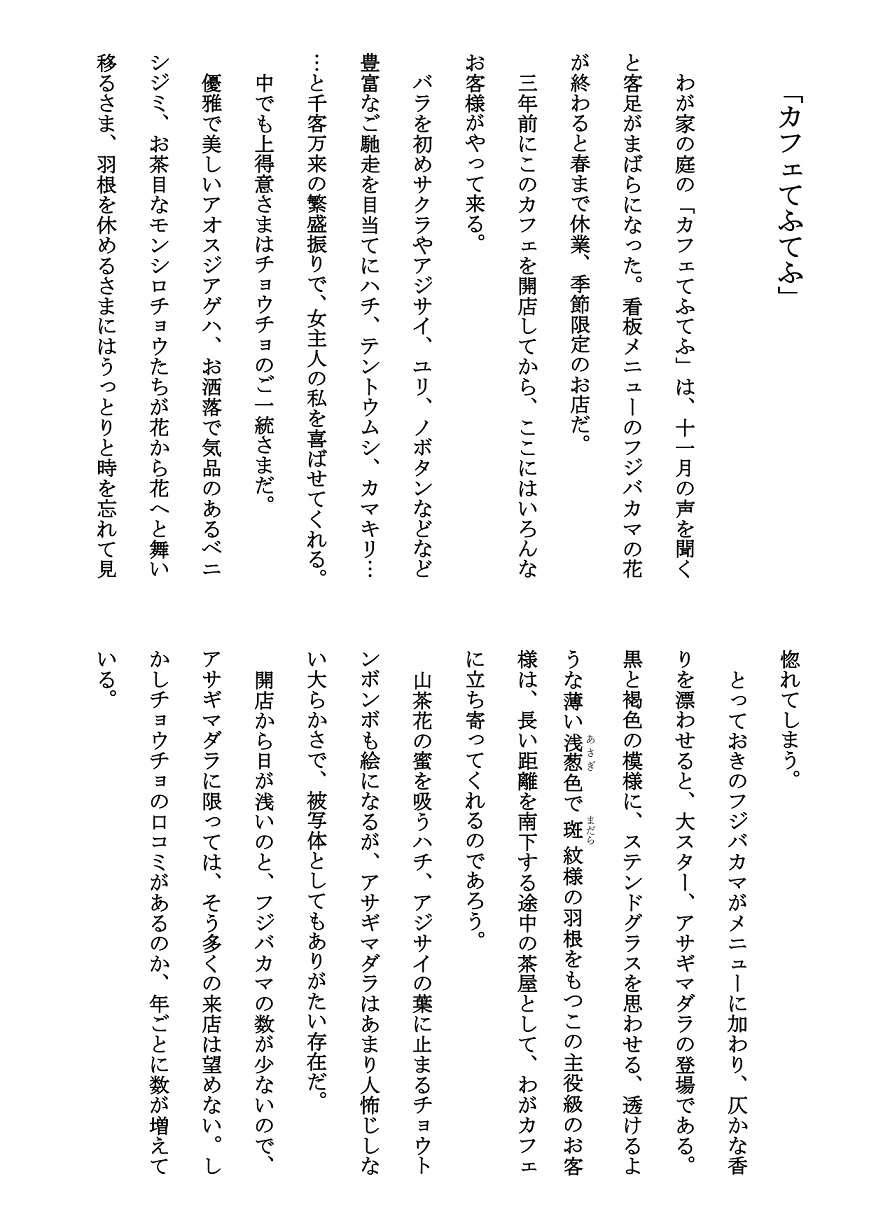 「カフェてふてふ」
わが家の庭の「カフェてふてふ」は、十一月の声を聞く
と客足がまばらになった。看板メニューのフジバカマの花
が終わると春まで休業、季節限定のお店だ。
三年前にこのカフェを開店してから、ここにはいろんな
お客様がやって来る。
バラを初めサクラやアジサイ、ユリ、ノボタンなどなど
豊富なご馳走を目当てにハチ、テントウムシ、カマキリ…
…と千客万来の繁盛振りで、女主人の私を喜ばせてくれる。
中でも上得意さまはチョウチョのご一統さまだ。
優雅で美しいアオスジアゲハ、お洒落で気品のあるベニ
シジミ、お茶目なモンシロチョウたちが花から花へと舞い
移るさま、羽根を休めるさまにはうっとりと時を忘れて見
惚れてしまう。
とっておきのフジバカマがメニューに加わり、仄かな香
りを漂わせると、大スター、アサギマダラの登場である。
黒と褐色の模様に、ステンドグラスを思わせる、透けるよ
うな薄い浅葱色で斑紋様の羽根をもつこの主役級のお客
あさぎ まだら
様は、長い距離を南下する途中の茶屋として、わがカフェ
に立ち寄ってくれるのであろう。
山茶花の蜜を吸うハチ、アジサイの葉に止まるチョウト
ンボンボも絵になるが、アサギマダラはあまり人怖じしな
い大らかさで、被写体としてもありがたい存在だ。
開店から日が浅いのと、フジバカマの数が少ないので、
アサギマダラに限っては、そう多くの来店は望めない。し
かしチョウチョの口コミがあるのか、年ごとに数が増えて
いる。